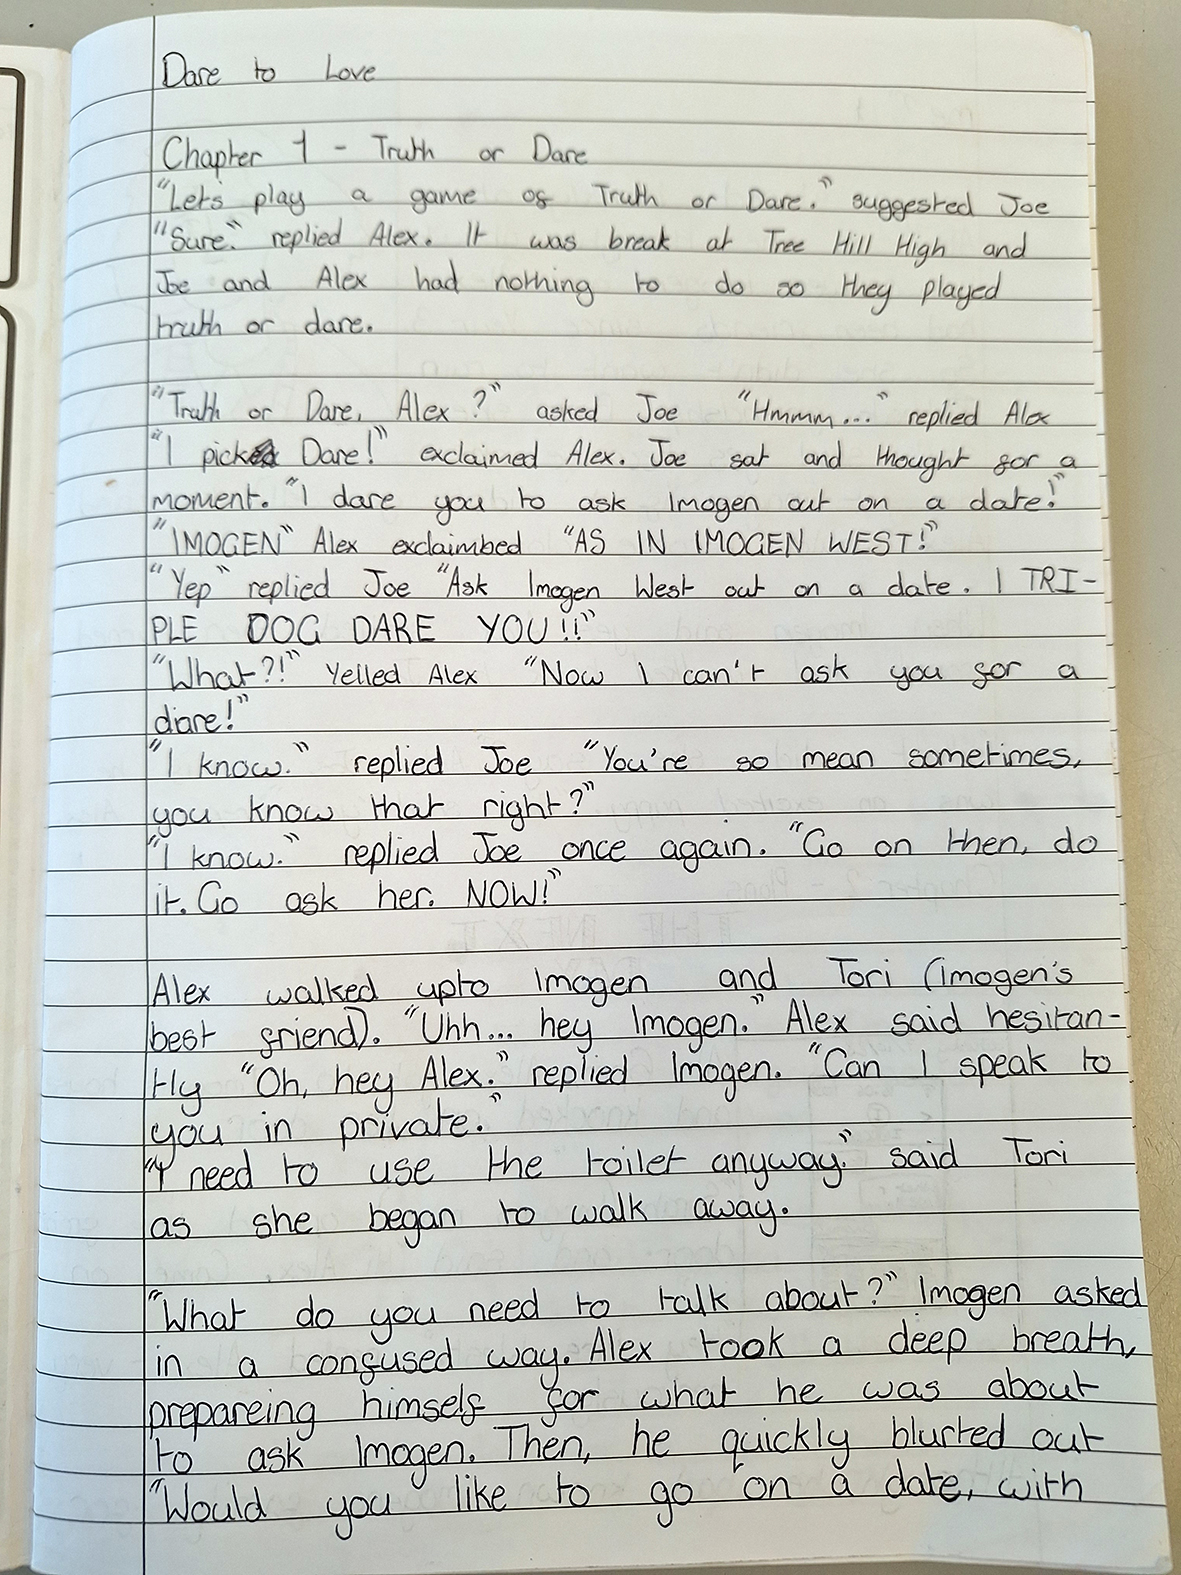 Dare to Love
Chapter 1 - Truth or Dare
"Let's play a game of Truth or Dare." suggested Joe
"Sure." replied Alex. It was break at Tree Hill High and
Joe and Alex had nothing to do so they played
truth or dare.
"Truth or Dare, Alex?" asked Joe "Hmmm..." replied Alex
"I pick Dare!" exclaimed Alex. Joe sat and thought for a
moment. "I dare you to ask Imogen out on a date!"
"IMOGEN" Alex exclaimbed "AS IN IMOGEN WEST!"
"Yep" replied Joe "Ask Imogen West out on a date. I TRI-
PLE DOG DARE YOU!!"
"What?!" Yelled Alex "Now I can't ask you for a
dare!"
"I know." replied Joe "You're so mean sometimes,
you know that right?"
"I know." replied Joe once again. "Go on then, do
it. Go ask her. NOW!"
Alex walked upto Imogen and Tori (imogen's
best friend). "Uhh... hey Imogen." Alex said hesitan-
tly "Oh, hey Alex." replied Imogen. "Can I speak to
you in private."
"I need to use the toilet anyway." said Tori
as she began to walk away.
"What do you need to talk about?" Imogen asked
in a confused way. Alex took a deep breath,
prepareing himself for what he was about
to ask Imogen. Then, he quickly blurted out
"Would you like to go on a date, with